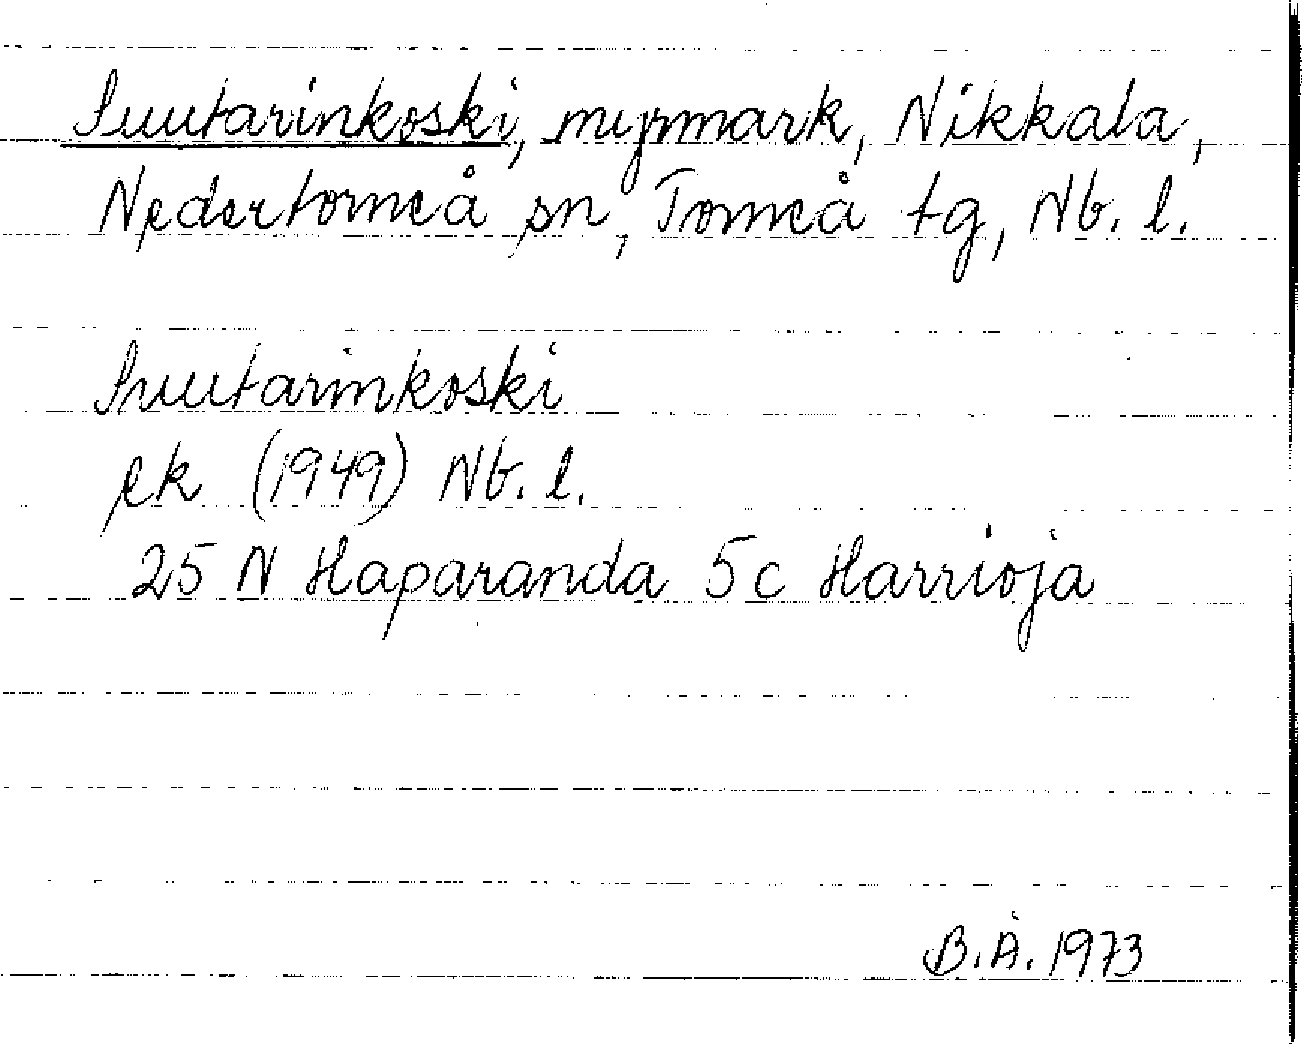 Suutarinkoski, myrmark, Nikkala,
Nedertorneå sn, Torneå tg, Nb. l.
Suutarinkoski
ek (1949) Nb. l.
25 N Haparanda 5c Harrioja
B.Å. 1973